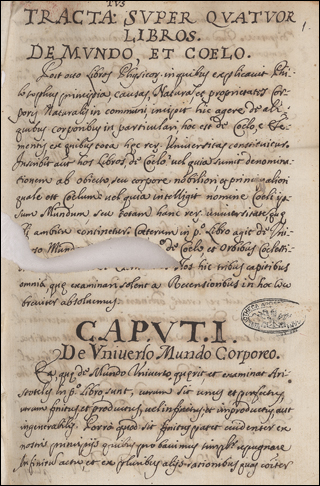 TVS
TRACTA: SVPER QVATVOR
LIBROS.
DE MVNDO, ET COELO.
Post octo libros Physicor. in quibus explicavit Philo
sophus principia causas, Natura et proprietates Cor
poris Naturalis in communi incipit hic agere de ali
quibus corporibus in particulari, hoc est de Coelo, et Ele
mentis ex quibus tota hec rer. Universitas constituitur.
Inscribit aut hos libros de Coelo vel quia sunt denomina
tionem ab obiecto seu corpore nobiliori et principaliori
quale est Coelum vel quia intelligit nomine Coeli ip
sum Mundum seu totam hanc rer. universitatem
ambitu contineri. Caeterum in p.º Libro agit de Uni
Mundo de Coelo et Orbibus Coelesti
his tribus capitibus
omnia, quae examinari solent a Recensionibus in hoc
breviter absolvemus.
CAPVT. I.
De Vniverso Mundo Corporeo.
Ea que de Mundo Universo querit et examinat Ari
stotiles in p.º libro sunt, utrum sit unus et perfectus,
utrum finitus et productus, vel infinitus et improductus aut
ingenerabilis. Porro quod sit finitus patet evidenter ex
nostris principiis quibus probavimus repugnare
Infinitum actu et ex pluribus aliis rationibus quas